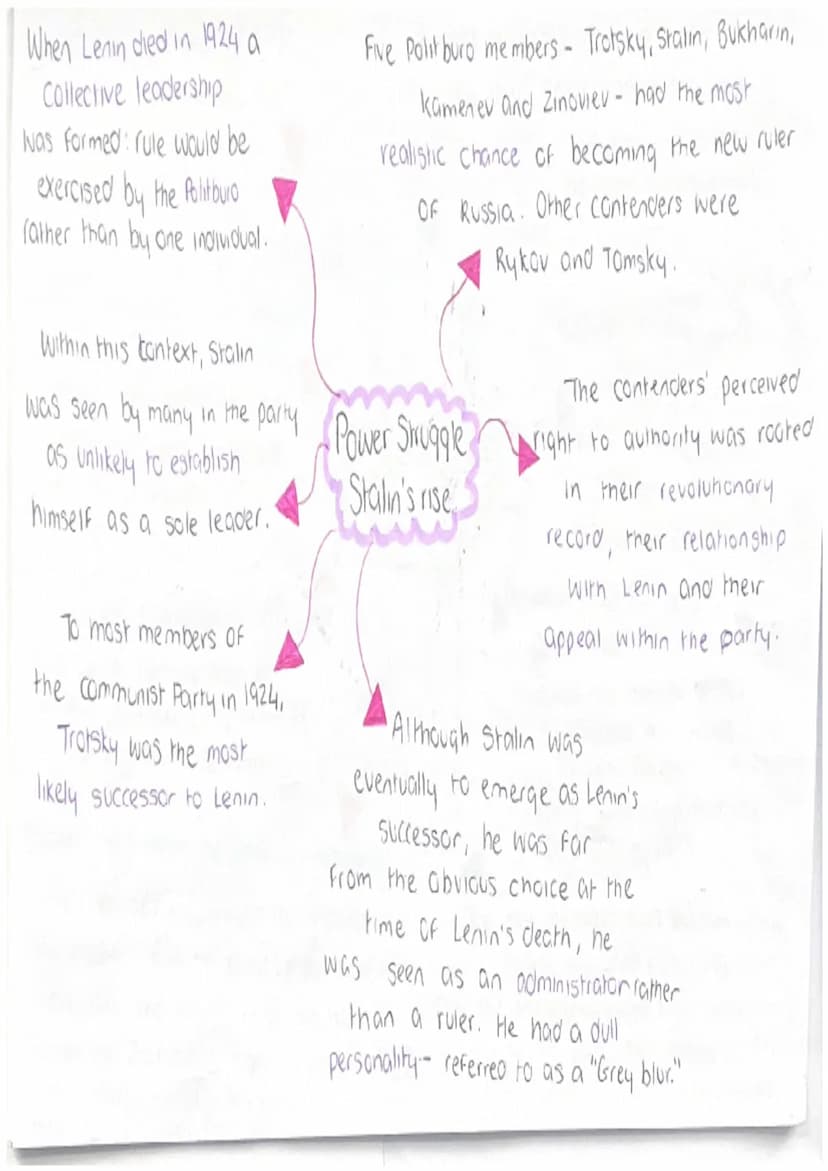 When Lenin died in 1924 a
Collective leadership
was formed: rule would be
exercised by the Politburo
rather than by one individual.
Five Politburo members - Trotsky, Stalin, Bukharin,
Kamenev and Zinoviev - had the most
realistic chance of becoming the new ruler
of Russia. Other contenders were
Rykov and Tomsky.
Within this context, Stalin
was seen by many in the party
as unlikely to establish
himself as a sole leader.
Power Struggle
Stalin's rise
The contenders' perceived
right to authority was rooted
in their revolutionary
record, their relationship
with Lenin and their
appeal within the party.
To most members of
the Communist Party in 1924,
Trotsky was the most
likely successor to Lenin.
Although Stalin was
eventually to emerge as Lenin's
successor, he was far
from the obvious choice at the
time of Lenin's death, he
was seen as an administrator rather
than a ruler. He had a dull
personality - referred to as a "Grey blur."